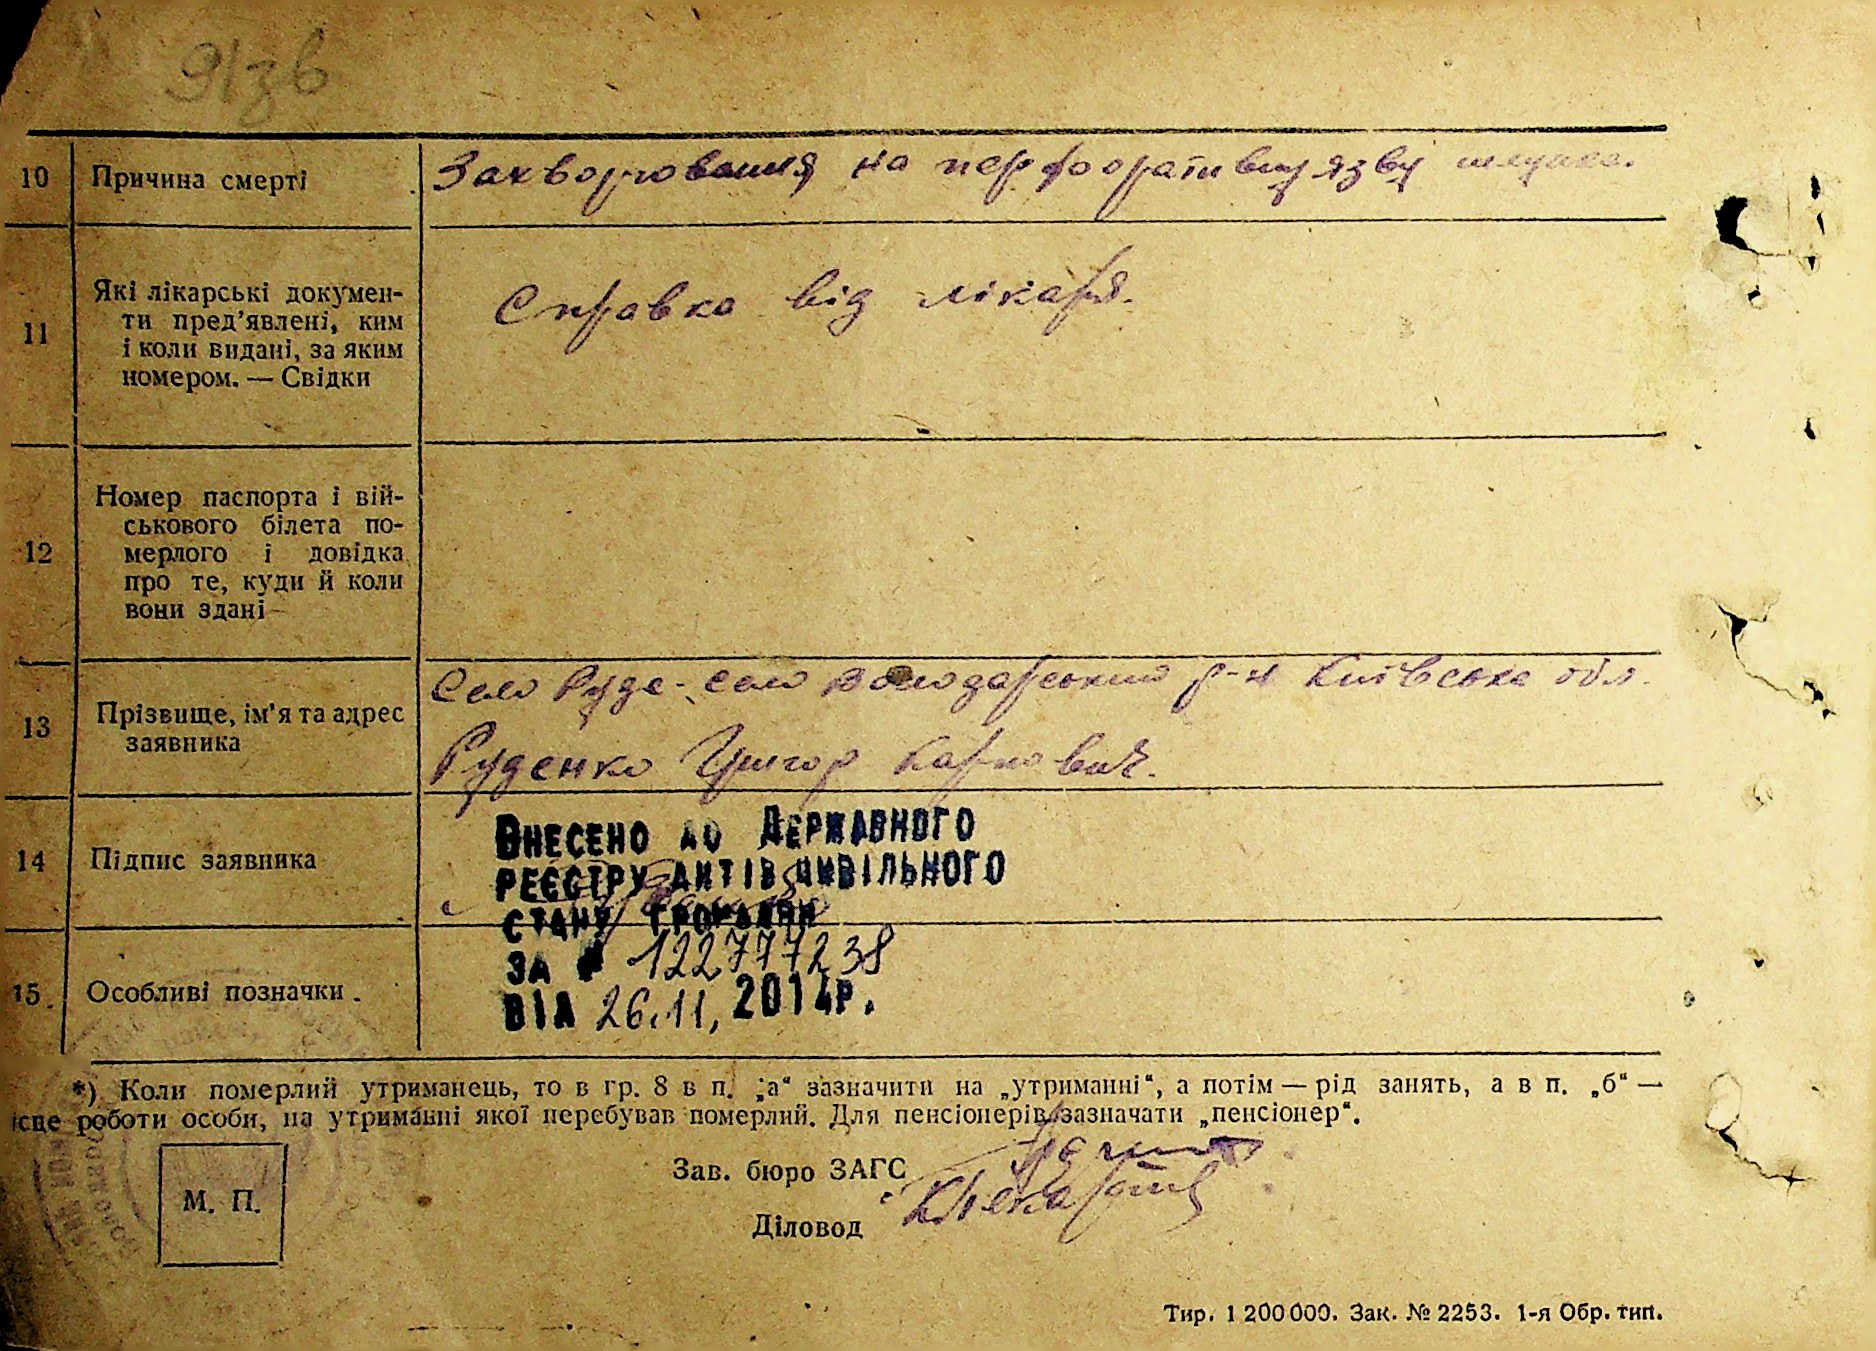 91зв
10 Причина смерті Захворювання на перфоративну язву шлунка.
11 Які лікарські докумен-
ти пред'явлені, ким
і коли видані, за яким
номером. — Свідки
Справка від лікаря.
12 Номер паспорта і вій-
ськового білета по-
мерлого і довідка
про те, куди й коли
вони здані
13 Прізвище, ім'я та адрес
заявника
Село Руде-село Володарський р-н Київська обл.
Руденко Григор Карпович.
14 Підпис заявника
ВНЕСЕНО ДО ДЕРЖАВНОГО
РЕЄСТРУ АКТІВ ЦИВІЛЬНОГО
СТАНУ ГРОМАДЯН
ЗА № 122777238
15. Особливі позначки.
ВІД 26.11, 2014р.
*) Коли померлий утриманець, то в гр. 8 в п. „а" зазначити на „утриманні", а потім — рід занять, а в п. „б" —
ісце роботи особи, на утриманні якої перебував померлий. Для пенсіонерів зазначати „пенсіонер".
Зав. бюро ЗАГС
М. П.
Діловод
Тир. 1 200 000. Зак. № 2253. 1-я Обр. тип.